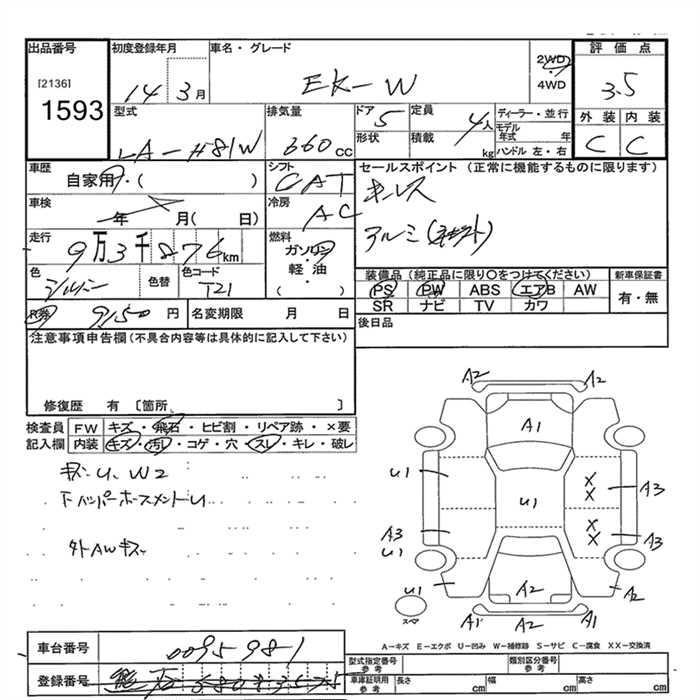 出品番号
[2136]
1593
初度登録年月
14 3月
車名・グレード
EK-W
2WD
・
4WD
評価点
3.5
外装 内装
C C
型式
LA-H81W
排気量
660cc
ドア
5
定員
4人
形状
積載
kg
ディーラー・並行
モデル年式 年
ハンドル 左・右
車歴
自家用・( )
シフト
CAT
セールスポイント (正常に機能するものに限ります)
キーレス
アルミ
車検
年 月( 日)
冷房
AC
走行
9万3千876km
燃料
ガソリン
・
軽油
( )
色
シルバー
色替
色コード
T21
装備品 (純正品に限り○をつけてください)
PS PW ABS エアB AW
SR ナビ TV カワ
新車保証書
有・無
R券
9150円
名変期限 月 日
後日品
注意事項申告欄(不具合内容等は具体的に記入して下さい)
修復歴 有 〔箇所 〕
検査員記入欄
FW キズ・飛石・ヒビ割・リペア跡・×要
内装 キズ・汚レ・コゲ・穴・スレ・キレ・破レ
キズU、W2
下バンパーホースメントU
外AWキズ
A2 A2
A1
U1
U1
X
X
A3
X
X
A3
A3
U1
U1
A2
A2
A1 A2 A1
スペア
A-キズ E-エクボ U-凹み W-補修跡 S-サビ C-腐食 XX-交換済
車台番号
0095981
登録番号
580
型式指定番号
参考
類別区分番号
参考
車庫証明用
参考
長さ cm
幅 cm
高さ cm